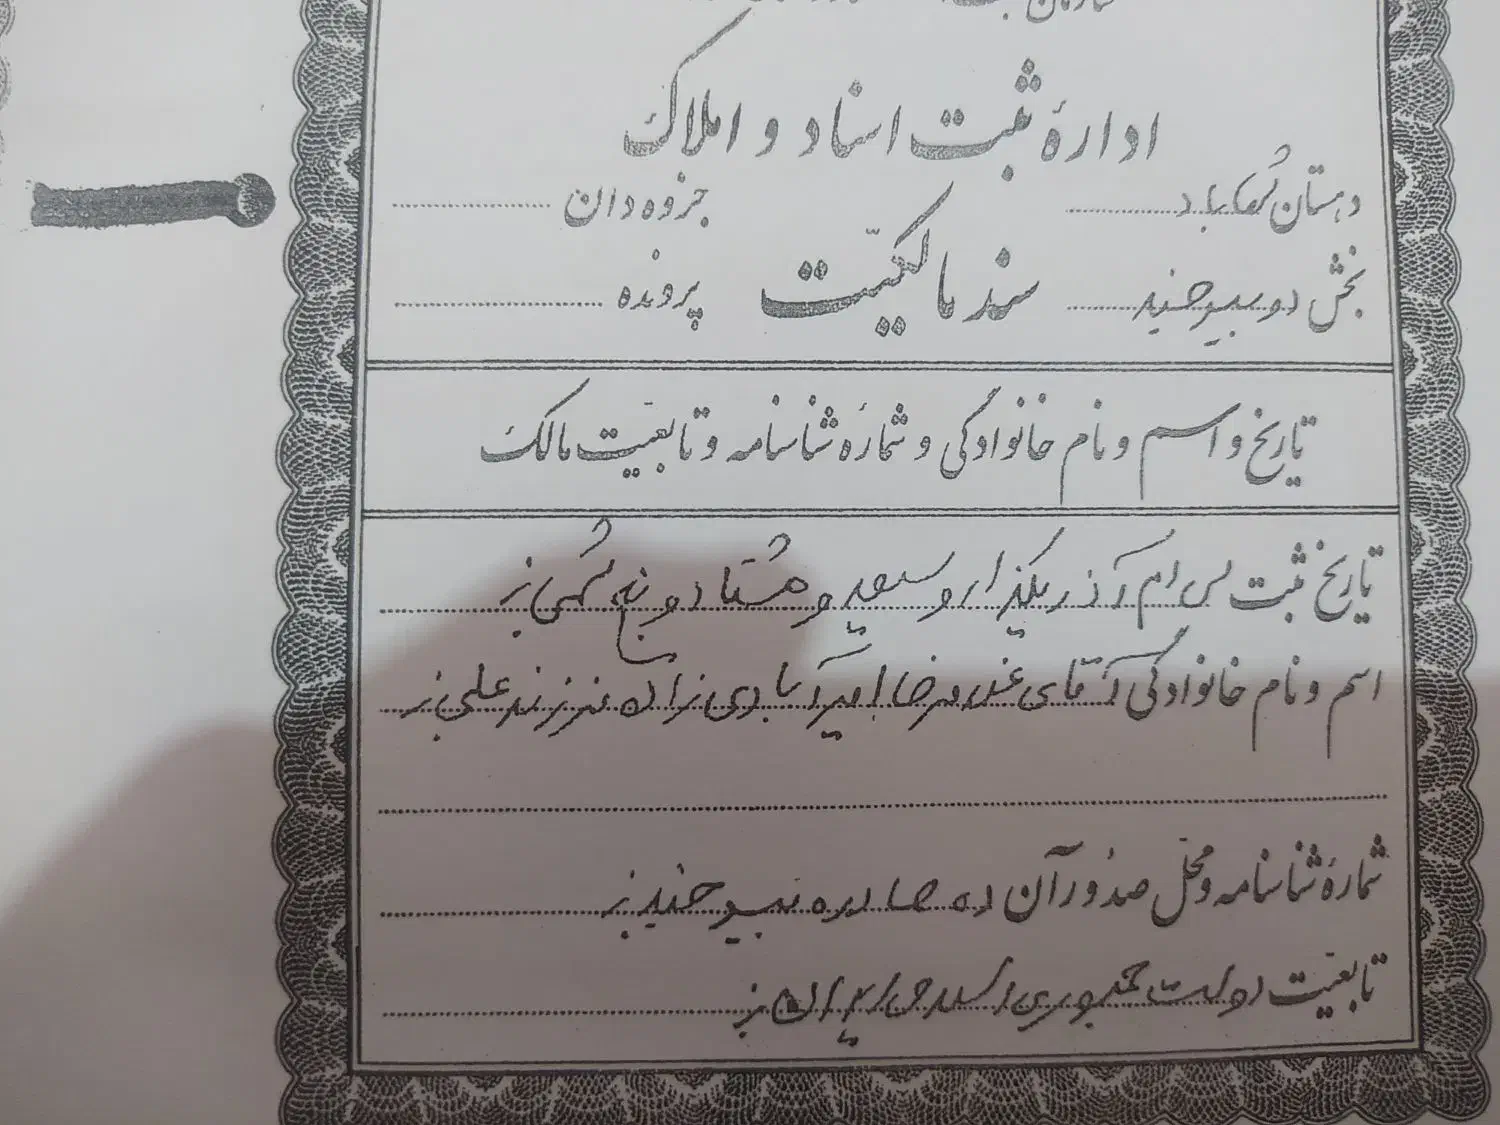 سازمان ثبت
ادارهٔ ثبت اسناد و املاک
دهستان جزوه دان
سند مالکیت
بخش دو بیرجند پرونده
تاریخ و اسم و نام خانوادگی و شمارهٔ شناسنامه و تابعیّت مالک
تاریخ ثبت سی ام آذر یکهزار و سیصد و هشتاد و نه شمسی
اسم و نام خانوادگی آقای غلامرضا امیرآبادی زاده فرزند علی
شمارهٔ شناسنامه و محّل صدور آن ده صادره بیرجند
تابعیّت دولت جمهوری اسلامی ایران